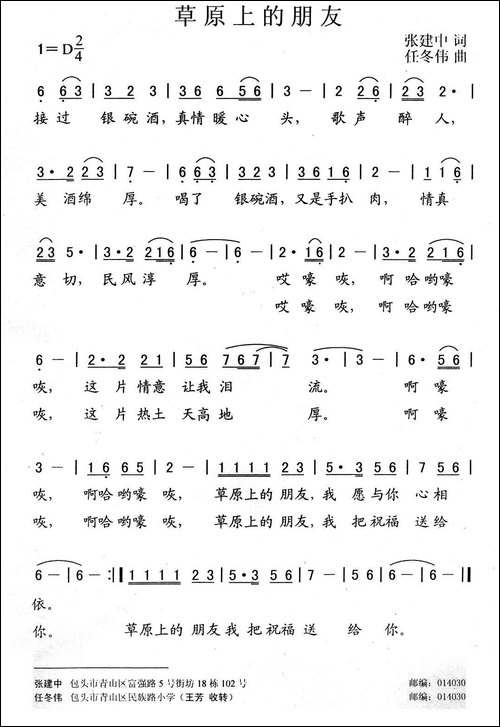 草原上的朋友
1=D 2/4
张建中 词
任冬伟 曲
6 6 3 | 3 2 3 2 | 3 6 6 5 6 | 3 - | 2 2 6 | 2 3 2· |
接过 银碗酒,真情暖心 头, 歌声 醉人,
3· 2 2 3 | 7 - | 6 6 3 | 3 2 3 | 3 6 1 6 | 2 - | 1 1 6 |
美 酒绵 厚。 喝了 银碗酒,又是手扒 肉, 情真
2 3 5· | 3·2 2 1 6 | 6 - | 6 - | 2· 1 6 | 2 - | 3·2 2 1 6 |
意 切, 民风淳 厚。 哎 嚎 咴, 啊哈哟嚎
哎 嚎 咴, 啊哈哟嚎
6 - | 2·2 2 | 2·1 2 | 5 6 | 7 6 7 | 7 | 3· | 3 - | 6· 5 6 |
咴, 这片情意 让我泪 流。 啊 嚎
咴, 这片热土 天高地 厚。 啊 嚎
3 - | 1 6 6 5 | 2 - | 1 1 1 1 2 3 | 5·3 5 6 | 7 5 6 |
咴, 啊哈哟嚎 咴, 草原上的 朋友,我 愿与你 心相
咴, 啊哈哟嚎 咴, 草原上的 朋友,我 把祝福 送给
6 - | 6 - :‖ 1 1 1 1 2 3 | 5·3 5 6 | 7 5 6 | 6 - | 6 - ‖
依。
你。 草原上的 朋友我 把祝福 送 给 你。
张建中 包头市青山区富强路5号街坊18栋102号 邮编:014030
任冬伟 包头市青山区民族路小学(王芳 收转) 邮编:014030